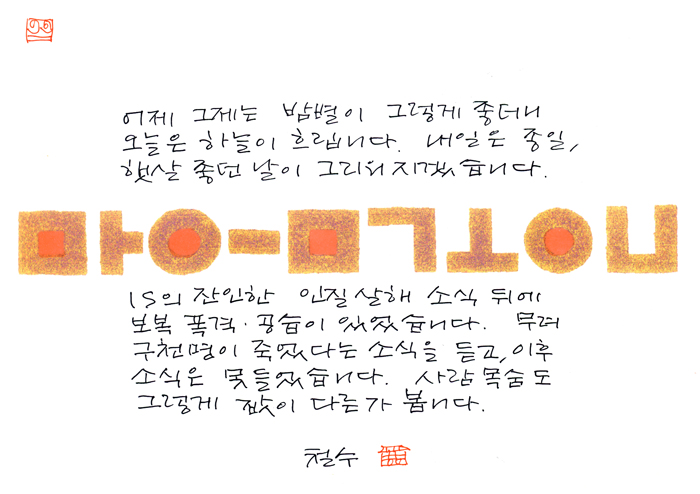 어제 그제는 밤별이 그렇게 좋더니
오늘은 하늘이 흐립니다. 내일은 종일,
햇살 좋던 날이 그리워 지겠습니다.
IS의 잔인한 인질 살해 소식 뒤에
보복 폭격·공습이 있었습니다. 무려
구천명이 죽었다는 소식을 듣고, 이후
소식은 못들었습니다. 사람 목숨도
그렇게 값이 다른가 봅니다.
철수